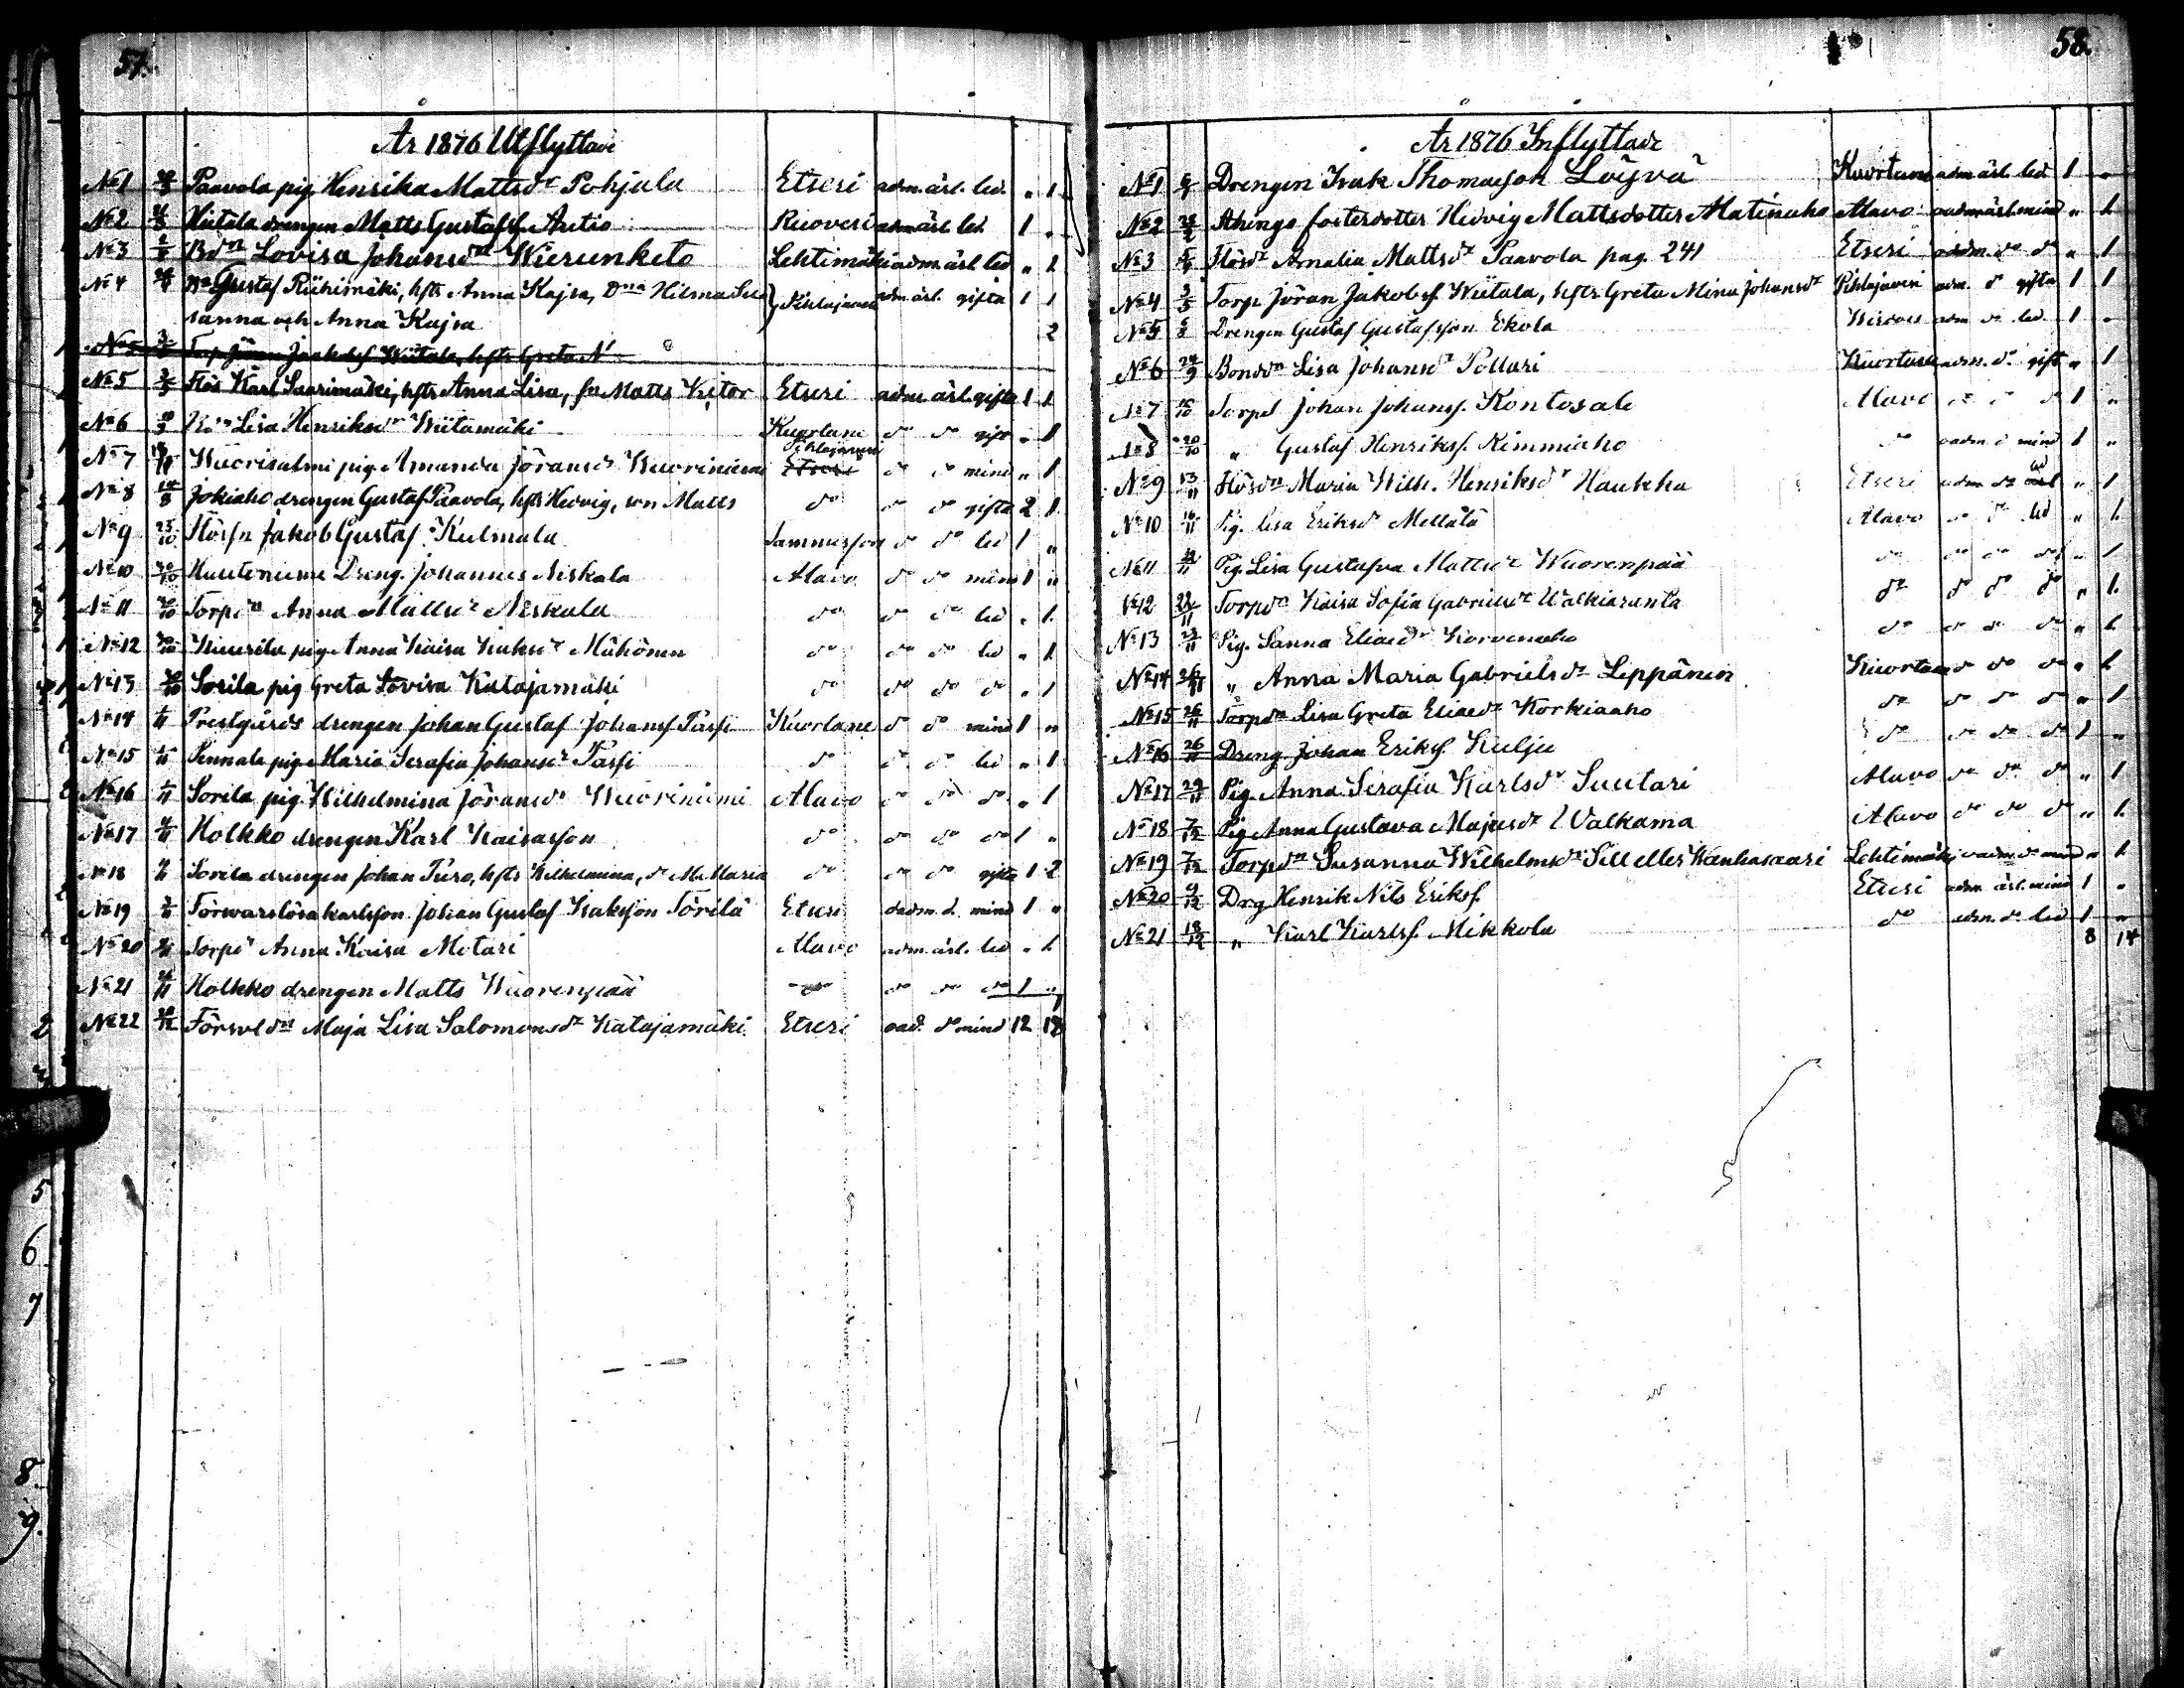 57.
År 1876 Utflyttade
№1 Paavola pig. Henrika Mattsdr Pohjala Etseri adm. ärl. led. " 1
№2 Wiitala drengen Matts Gustafss. Autio adm. ärl. led. 1 "
№3 Bdn Lovisa Johansdr Wierunketo Lehtimäki adm. ärl. led " 1
№4 Gustaf Riihimäki, hstr Anna Kajsa, Hilma Su Pihlajavesi adm. ärl. gifta 1 1
sanna och Anna Kajsa 2
№5 Torp. Jöran Jakobss Wiitala, hstr Greta
№5 Karl Saarimäki, hstr Anna Lisa, Matts Victor Etseri adm. ärl. gifta 1 1
№6 Lisa Henriksdr Wiitamäki Kuortane do do gift " 1
№7 Wuorisalmi pig. Amanda Jöransdr Wuoriniemi Etseri Pihlajavesi do do mind " 1
№8 14/8 Jokiaho drengen Gustaf Paavola, hstr Hedvig, son Matts do do do gifta 2 1
№9 23/10 Jakob Gustaf Kulmala do do led 1 "
№10 30/10 Dreng. Johannes Niskala Alavo do do mind 1 "
№11 30/10 Torpdr Anna Mattsdr Niskala do do do led " 1
№12 30/10 pig. Anna Kaisa Mähönen do do do led " 1
№13 30/10 Sorila pig Greta Lovisa Katajamäki do do do do " 1
№14 Prestgårds drengen Johan Gustaf Johanss Passi Kuortane do do mind 1 "
№15 Pennala pig. Maria Serafia Johansdr Passi do do do led " 1
№16 Sorila pig. Wilhelmina Jöransdr Wuoriniemi Alavo do do do " 1
№17 Holkko drengen Karl Kaisasson do do do do 1 "
№18 Sorila drengen Johan Turo, hstr Wilhelmina, Maria do do do gifta 1 2
№19 Förwarslösa Karlsson Johan Gustaf Isaksson Törilä Etseri oadm. d. mind 1 "
№20 Torpdr Anna Kaisa Metari Alavo adm. ärl. led " 1
№21 Holkko drengen Matts Wuorenpää do do do do 1 "
№22 Maja Lisa Salomonsdr Katajamäki Etseri oad. do mind 12 18
58.
År 1876 Inflyttade
№1 Drengen Isak Thomasson Löyvä Kuortane adm ärl. led 1 "
№2 Åhings fosterdotter Hedvig Mattsdotter Matinaho Alavo oadm ärl. mind " 1
№3 Amalia Mattsdr Paavola pag. 241 Etseri oadm. do do " 1
№4 3/5 Torp. Jöran Jakobss. Wiitala, hstr Greta Mina Johansdr Pihlajavesi adm. do gifta 1 1
№5 Drengen Gustaf Gustafsson Ekola Wirdois adm do led. 1 "
№6 24/9 Bondn Lisa Johansdr Pollari Kuortane adm. do gift " 1
№7 15/10 Torpd Johan Johanss. Kontosale Alavo do 1 "
№8 20/10 " Gustaf Henrikss. Kimmiaho do oadm. d mind 1 "
№9 13/11 Maria Wilh. Henriksdr Haukka Etseri adm do led " 1
№10 16/11 Pig. Lisa Eriksdr Mellälä Alavo do do led " 1
№11 Pig. Lisa Gustafva Mattsdr Wuorenpää do do do do " 1
№12 22/11 Torpdn Kaisa Sofia Gabrielsdr Walkiaranta do do do do " 1
№13 23/11 Pig. Sanna Eliaedr Korvenaho do do do do " 1
№14 26/11 " Anna Maria Gabrielsdr Leppänen Kuortane do do do " 1
№15 26/11 Torpdn Lisa Greta Eliaedr Korkiaaho do do do do " 1
№16 26/11 Dreng Johan Erikss. Kulju do do do do 1 "
№17 29/11 Pig. Anna Serafia Karlsdr Suutari Alavo do do do " 1
№18 7/12 Pig Anna Gustava Majasdr Walkama Alavo do do do " 1
№19 7/12 Torpdn Susanna Wilhelmsdr Sill eller Wanhasaari Lehtimäki oadm. do mind " 1
№20 9/12 Drg Henrik Nils Erikss. Etseri adm. ärl. mind 1 "
№21 18/12 " Karl Karlss. Mikkola do adm. do led 1 "
8 14
2
5
6
7
8
9.